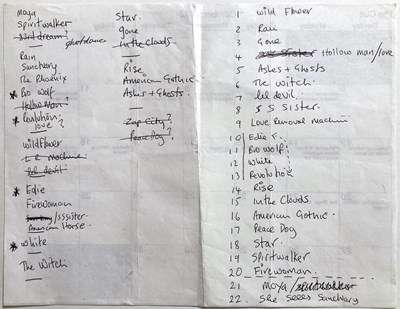 Maya
Spiritwalker
Wild dream?
ghostdance
Rain
Sanctuary
The Phoenix
* Bro Wolf
Hollow Man?
* Revolution
love?
Wildflower
L R Machine
lil devil
* Edie
Firewoman
/sssister
American Horse.
* White
The Witch
Star.
gone
In the Clouds
Rise
American Gothic.
Ashes + Ghosts.
Zap City?
Peace Dog?
1 Wild Flower
2 Rain
3 Gone
4 Hollow man/love
5 Ashes + Ghosts
6 The Witch.
7 lil devil
8 S S Sister.
9 Love Removal Machine
10 Edie
11 Bro Wolf
12 White
13 Revolution
14 Rise
15 In the Clouds.
16 American Gothic.
17 Peace Dog
18 Star.
19 Spiritwalker
20 Firewoman.
21 Maya /
22. She Sells Sanctuary